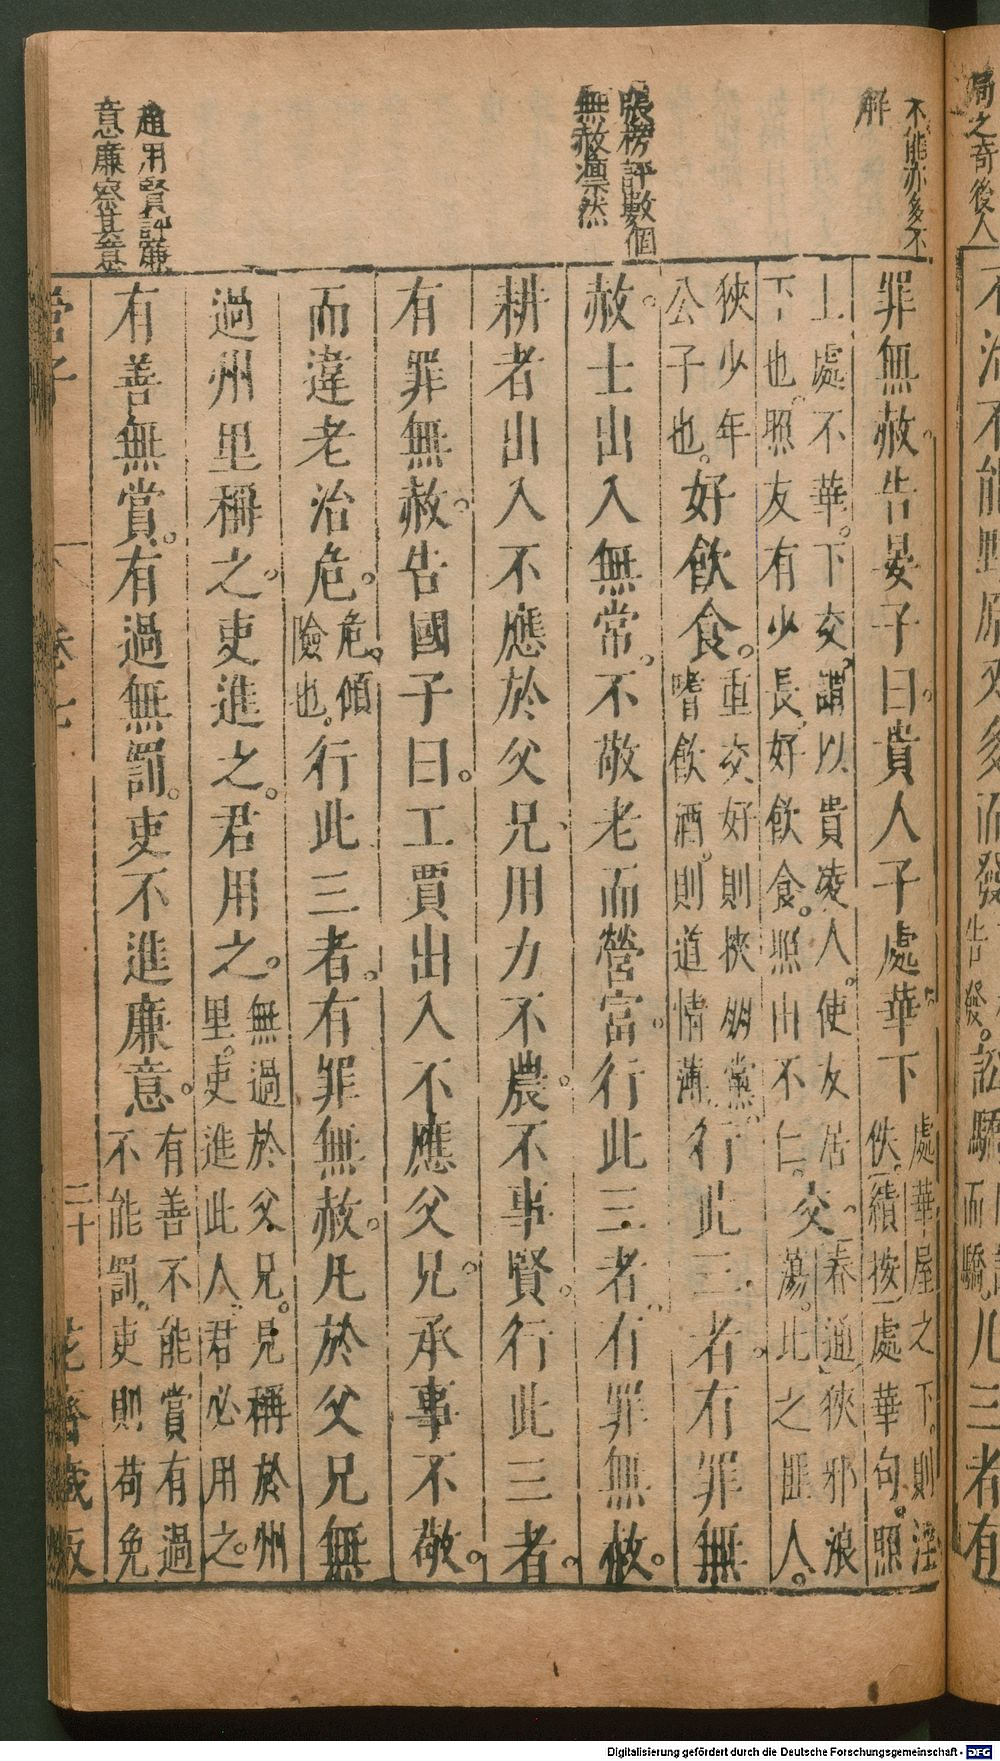 局之奇後人
而發
訟驕
凡三者有
不能亦多不
解
張榜評數個
無赦凛然
趙用賢評廉
意廉察其意
罪無赦。告晏子曰。貴人子處華。下
處華屋之下。則淫
佚。績按處華句。照
上處不華。下交。謂以貴凌人。使友居
下也。照友有少長。好飲食。照出不仁。
交。
春通狹邪浪
蕩。此之匪人。
狹少年
公子也。
好飲食。
重交好則挾朋黨。
嗜飲酒。則道情薄。
行此三者。有罪無
赦。士出入無常。不敬老而營富。行此三者。有罪無赦。
耕者出入不應於父兄、用力不農。不事賢。行此三者。
有罪無赦。告國子曰。工賈出入不應父兄。承事不敬。
而違老治危。
危。傾
險也。
行此三者。有罪無赦。凡於父兄無
過州里稱之。吏進之。君用之。
無過於父兄。見稱於州
里。吏進此人。君必用之。
有善無賞。有過無罰。吏不進廉意。
有善不能賞有過
不能罰。吏則苟免
管子
卷七
二十
花齋藏板
Digitalisierung gefördert durch die Deutsche Forschungsgemeinschaft - DFG